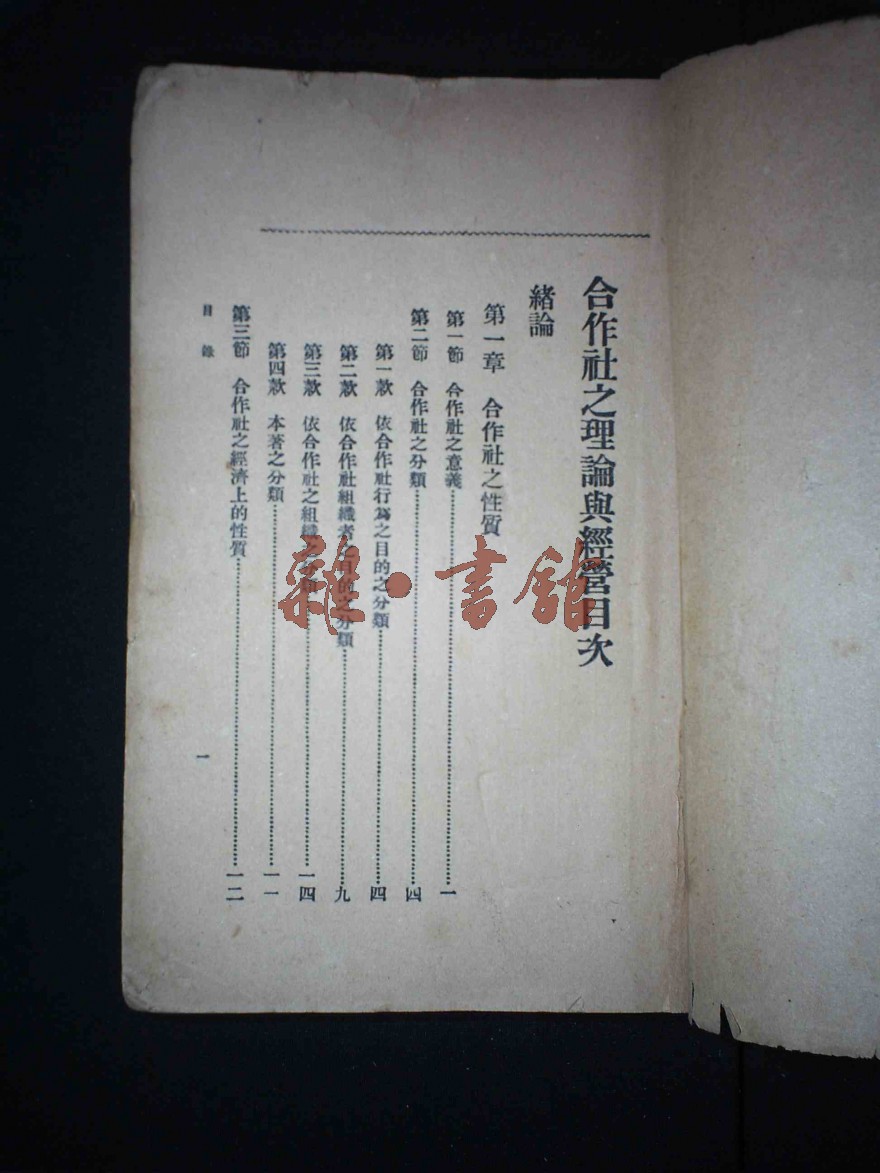 合作社之理論與經營目次
緒論
第一章 合作社之性質
第一節 合作社之意義………一
第二節 合作社之分類………四
第一款 依合作社行為之目的之分類………四
第二款 依合作社組織者之目的之分類………九
第三款 依合作社之組織之分類………一四
第四款 本著之分類………一一
第三節 合作社之經濟上的性質………一二
目錄
一
雜·書館